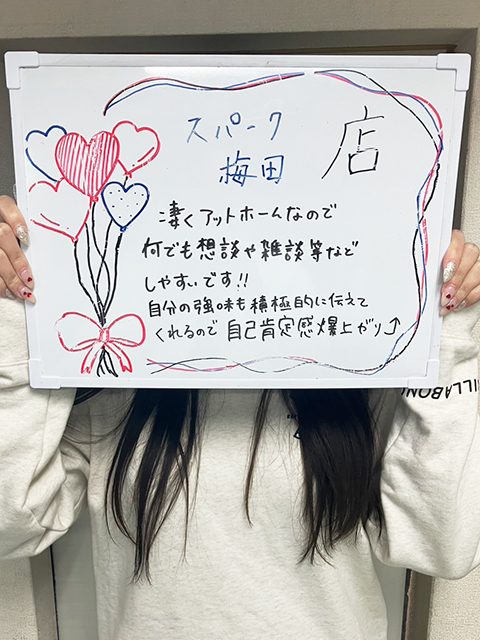 スパーク
梅田
店
凄くアットホームなので
何でも想談や雑談等など
しやすいです!!
自分の強味も積極的に伝えて
くれるので自己肯定感爆上がり↑
BILLABONG